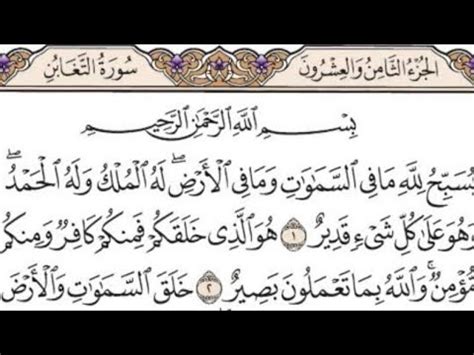 الجُزْءُ الثَّامِنُ وَالعِشْرُونَ سُورَةُ التَّغَابُنِ
بِسْمِ اللَّهِ الرَّحْمَٰنِ الرَّحِيمِ
يُسَبِّحُ لِلَّهِ مَا فِي السَّمَٰوَٰتِ وَمَا فِي الْأَرْضِ ۖ لَهُ الْمُلْكُ وَلَهُ الْحَمْدُ ۖ
وَهُوَ عَلَىٰ كُلِّ شَىْءٍ قَدِيرٌ ١ هُوَ الَّذِي خَلَقَكُمْ فَمِنكُمْ كَافِرٌ وَمِنكُم
مُّؤْمِنٌ ۚ وَاللَّهُ بِمَا تَعْمَلُونَ بَصِيرٌ ٢ خَلَقَ السَّمَٰوَٰتِ وَالْأَرْضَ